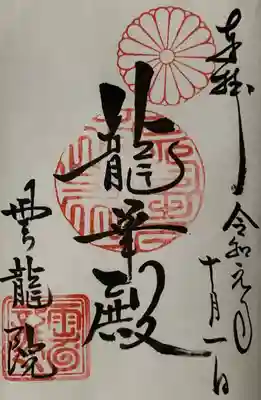 奉拝
令和元年十月一日
龍華殿
雲龍院